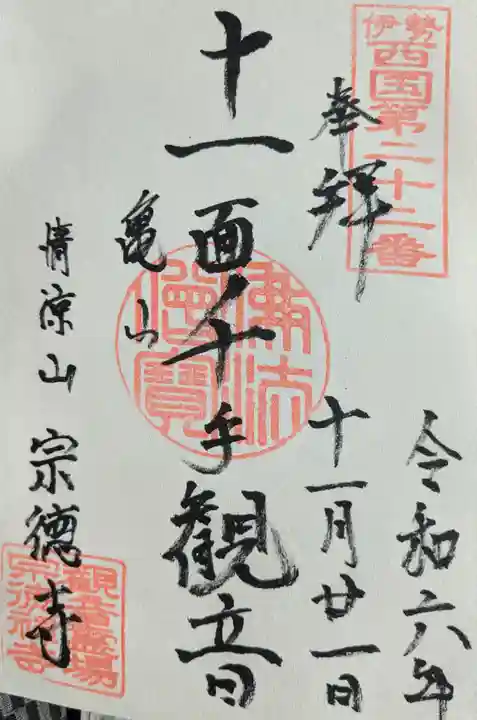 伊勢
西国第二十二番
奉拝
令和六年
十一月廿一日
十一面千手観音
佛法
僧寶
亀山
清涼山 宗徳寺
観音霊場